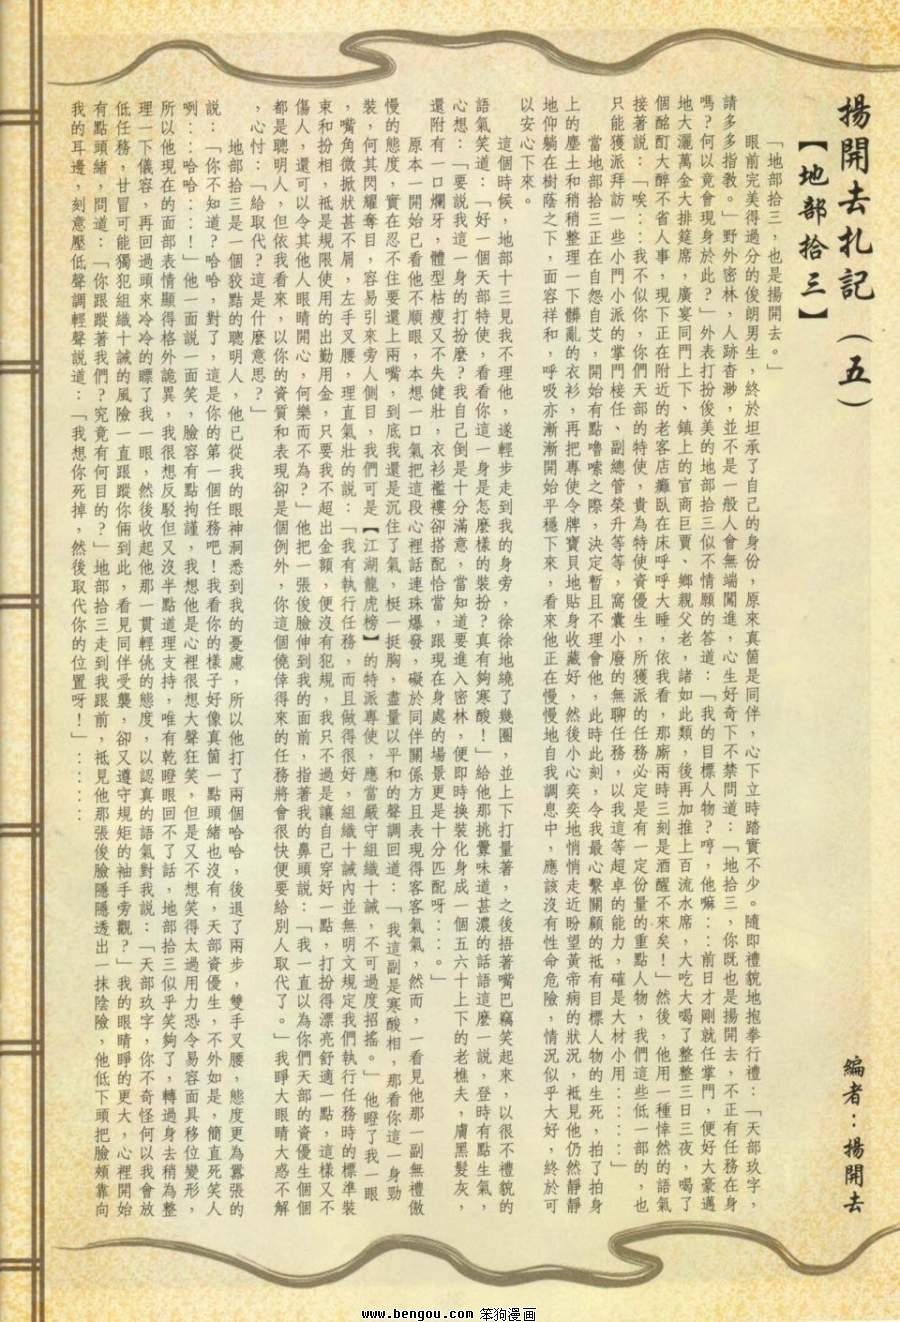 揚開去札記（五）
【地部拾三】
編者：揚開去
「地部拾三，也是揚開去。」
眼前完美得過分的俊朗男生，終於坦承了自己的身份，原來真箇是同伴，心下立時踏實不少。隨即禮貌地抱拳行禮：「天部玖字，
請多多指教。」野外密林，人跡杳渺，並不是一般人會無端闖進，心生好奇下不禁問道：「地拾三，你既也是揚開去，不正有任務在身
嗎？何以竟會現身於此？」外表打扮俊美的地部拾三似不情願的答道：「我的目標人物？哼，他嘛：：前日才剛就任掌門，便好大豪邁
地大灑萬金大排筵席，廣宴同門上下、鎮上的官商巨賈、鄉親父老，諸如此類，後再加推上百流水席，大吃大喝了整整三日三夜，喝了
個酩酊大醉不省人事，現下正在附近的老客店癱臥在床呼呼大睡，依我看，那廝兩時三刻是酒醒不來矣！」然後，他用一種悻然的語氣
接著說：「唉：：我不似你，你們天部的特使，貴為特使資優生，所獲派的任務必定是有一定份量的重點人物，我們這些低一部的，也
只能獲派拜訪一些小門小派的掌門接任、副總管榮升等等，窩囊小廢的無聊任務，以我這等超卓的能力，確是大材小用：：：：」
當地部拾三正在自怨自艾，開始有點嚕嗦之際，決定暫且不理會他，此時此刻，令我最心繫關顧的祗有目標人物的生死，拍了拍身
上的塵土和稍稍整理一下髒亂的衣衫，再把專使令牌寶貝地貼身收藏好，然後小心奕奕地悄悄走近盼望黃帝病的狀況，祗見他仍然靜靜
地仰躺在樹蔭之下，面容祥和，呼吸亦漸漸開始平穩下來，看來他正在慢慢地自我調息中，應該沒有性命危險，情況似乎大好，終於可
以安心下來。
這個時候，地部十三見我不理他，遂輕步走到我的身旁，徐徐地繞了幾圈，並上下打量著，之後捂著嘴巴竊笑起來，以很不禮貌的
語氣笑道：「好一個天部特使，看看你這一身是怎麼樣的裝扮？真有夠寒酸！」給他那挑釁味道甚濃的話語這麼一說，登時有點生氣，
心想：「要說我這一身的打扮麼？我自己倒是十分滿意，當知道要進入密林，便即時換裝化身成一個五六十上下的老樵夫，膚黑髮灰，
還附有一口爛牙，體型枯瘦又不失健壯，衣衫襤褸卻搭配恰當，跟現在身處的場景更是十分匹配呀：：：。」
原本一開始已看他不順眼，本想一口氣把這段心裡話連珠爆發，礙於同伴關係方且表現得客客氣氣，然而，一看見他那一副無禮傲
慢的態度，實在忍不住要還上兩嘴，到底我還是沉住了氣，梃一挺胸，盡量以平和的聲調回道：「我這副是寒酸相，那看你這一身勁
裝，何其閃耀奪目，容易引來旁人側目，我們可是【江湖龍虎榜】的特派專使，應當嚴守組織十誡，不可過度招搖。」他瞪了我一眼
，嘴角微掀狀甚不屑，左手叉腰，理直氣壯的說：「我有執行任務，而且做得很好，組織十誡內並無明文規定我們執行任務時的標準裝
束和扮相，祗是規限使用的出勤用金，只要我不超出金額，便沒有犯規，我只不過是讓自己穿好一點，打扮得漂亮舒適一點，這樣又不
傷人，還可以令其他人眼睛開心，何樂而不為？」他把一張俊臉伸到我的面前，指著我的鼻頭說：「我一直以為你們天部的資優生個個
都是聰明人，但依我看來，以你的資質和表現卻是個例外，你這個僥倖得來的任務將會很快便要給別人取代了。」我睜大眼睛大惑不解
，心忖：「給取代？這是什麼意思？」
地部拾三是一個狡黠的聰明人，他已從我的眼神洞悉到我的憂慮，所以他打了兩個哈哈，後退了兩步，雙手叉腰，態度更為囂張的
說：「你不知道？哈哈，對了，這是你的第一個任務吧！我看你的樣子好像真箇一點頭緒也沒有，天部資優生，不外如是，簡直死笑人
咧：：哈哈：：：！」他一面說一面笑，臉容有點拘謹，我想他是心裡很想大聲狂笑，但是又不想笑得太過用力恐令易容面具移位變形，
所以他現在的面部表情顯得格外詭異，我很想反駁但又沒半點道理支持，唯有乾瞪眼回不了話，地部拾三似乎笑夠了，轉過身去稍為整
理一下儀容，再回過頭來冷冷的瞟了我一眼，然後收起他那一貫輕佻的態度，以認真的語氣對我說：「天部玖字，你不奇怪何以我會放
低任務，甘冒可能獨犯組織十誡的風險一直跟蹤你倆到此，看見同伴受襲，卻又遵守規矩的袖手旁觀？」我的眼睛睜的更大，心裡開始
有點頭緒，問道：「你跟蹤著我們？究竟有何目的？」地部拾三走到我跟前，祗見他那張俊臉隱隱透出一抹陰險，他低下頭把臉頰靠向
我的耳邊，刻意壓低聲調輕聲說道：「我想你死掉，然後取代你的位置呀！」：：：：
www.bengou.com 笨狗漫画